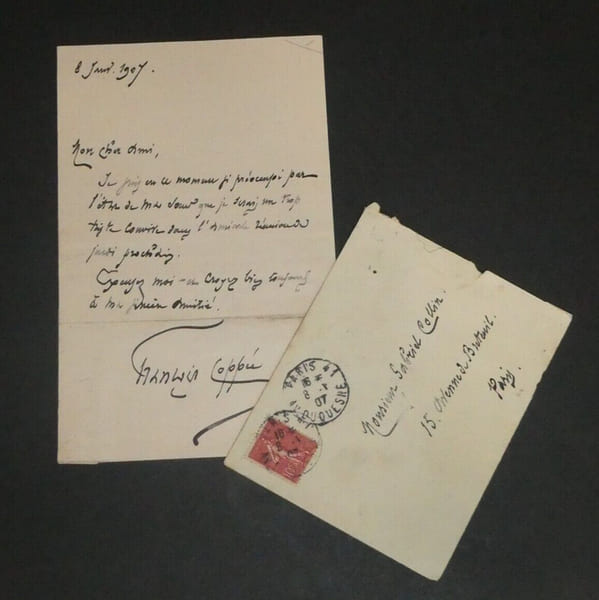 8 Janv. 1907.
Mon cher Ami,
Je suis en ce moment si préoccupé par
l'état de ma sœur que je serais un trop
triste convive dans l'amicale réunion de
jeudi prochain.
Excusez moi et croyez bien toujours
à ma sincère amitié.
François Coppée
Monsieur Gabriel Collin.
15. Avenue de Breteuil.
Paris.
PARIS 41
8 -1
07
AV. DUQUESNE